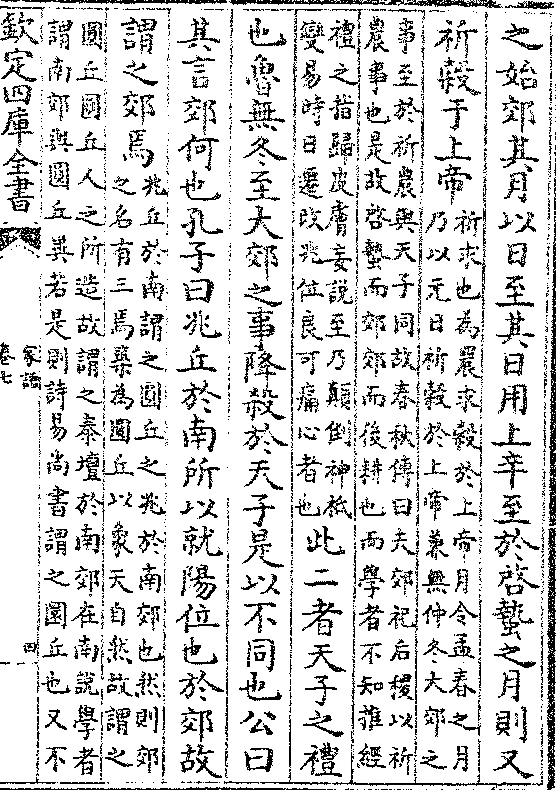 之始郊其月以日至其日用上辛至於啓蟄之月則又
祈穀于上帝
祈求也為農求穀於上帝月令孟春之月
乃以元日祈穀於上帝兼無仲冬大郊之
事至於祈農與天子同故春秋傳曰夫郊祀后稷以祈
農事也是故啓蟄而郊郊而後耕也而學者不知推經
禮之指歸皮膚妄說至乃顛倒神祇
變易時日遷改兆位良可痛心者也
此二者天子之禮
也魯無冬至大郊之事降殺於天子是以不同也公曰
其言郊何也孔子曰兆丘於南所以就陽位也於郊故
謂之郊焉
兆丘於南謂之圜丘之兆於南郊也然則郊
之名有三焉築為圜丘以象天自然故謂之
圜丘圜丘人之所造故謂之泰壇於南郊在南說學者
謂南郊與圜丘異若是則詩易尚書謂之圜丘也又不
欽定四庫全書
家語
卷七
四